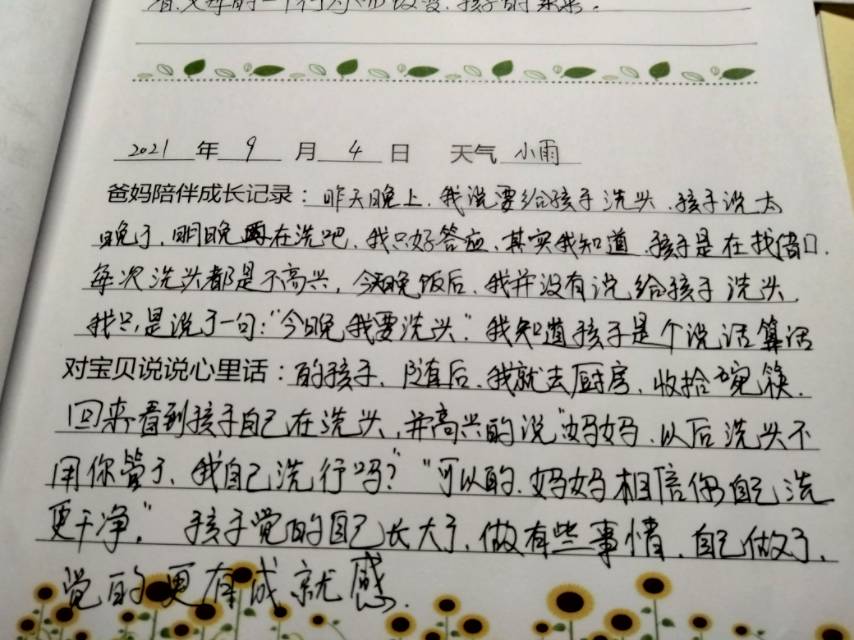 看父母的一个行为而改变.孩子的未来.
2021 年 9 月 4 日 天气 小雨
爸妈陪伴成长记录：昨天晚上.我说要给孩子洗头.孩子说太
晚了.明晚在洗吧.我只好答应.其实我知道.孩子是在找借口.
每次洗头都是不高兴.今天晚饭后.我并没有说给孩子洗头.
我只是说了一句:“今晚我要洗头.”我知道孩子是个说话算话
对宝贝说说心里话：的孩子.随后.我就去厨房.收拾碗筷.
回来看到孩子自己在洗头.并高兴的说“妈妈.以后洗头不
用你管了.我自己洗行吗?”“可以的.妈妈相信你自己洗
更干净.”孩子觉的自己长大了.做有些事情.自己做了.
觉的更有成就感.